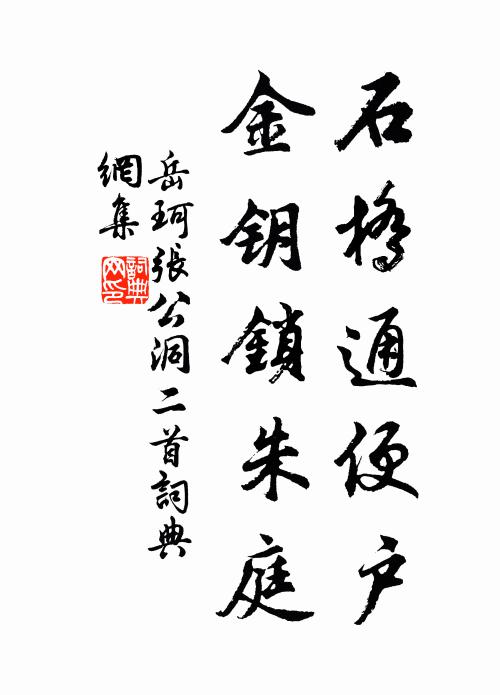 石橋通便户
金钥鎖朱庭
岳珂張公洞二首詞典
網集
詞典
网印